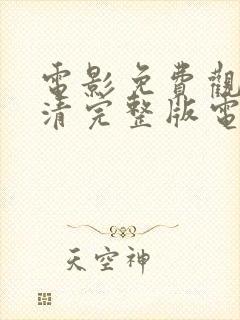 電影免費觀
清完整版電
天空神